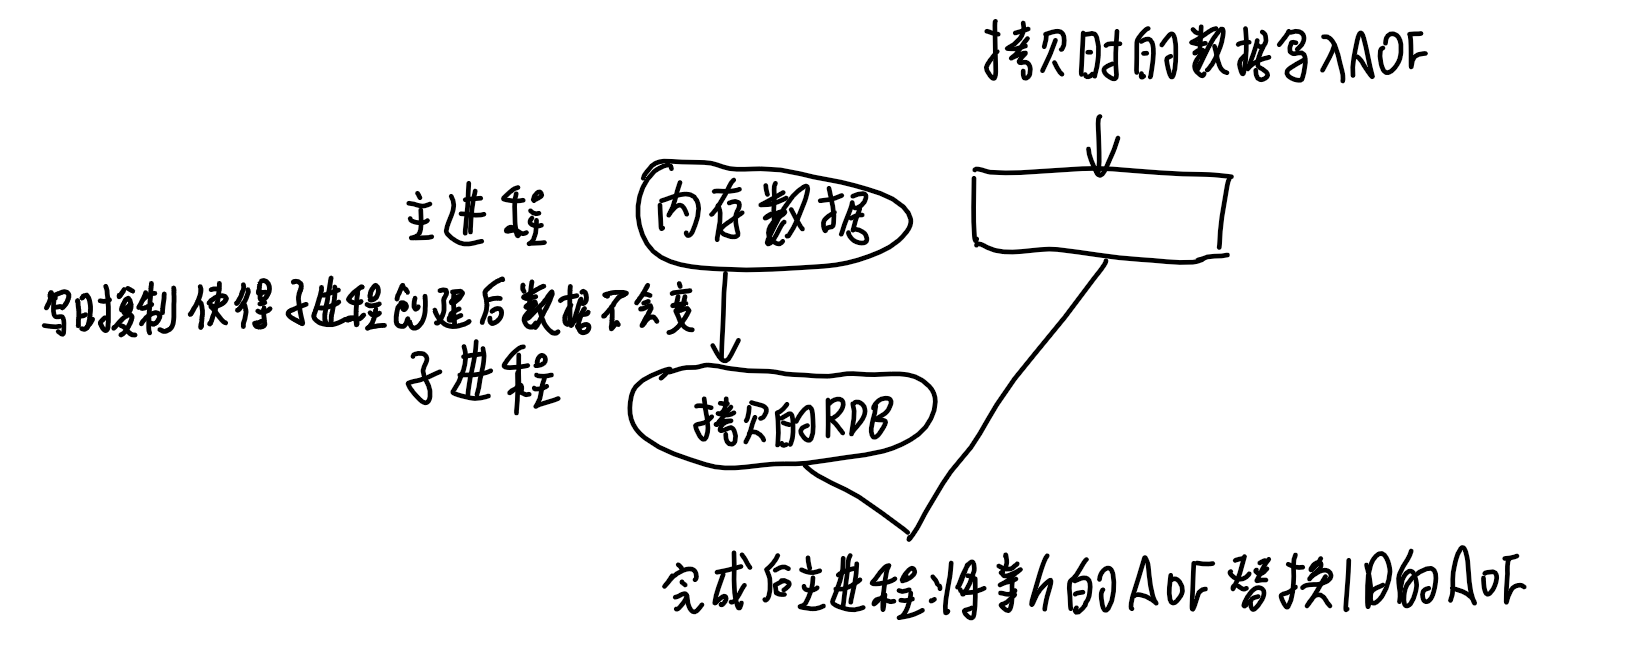 拷贝时的数据写入AOF
主进程
内存数据
写时复制使得子进程创建后数据不会变
子进程
拷贝的RDB
完成后主进程将新的AOF替换旧的AOF